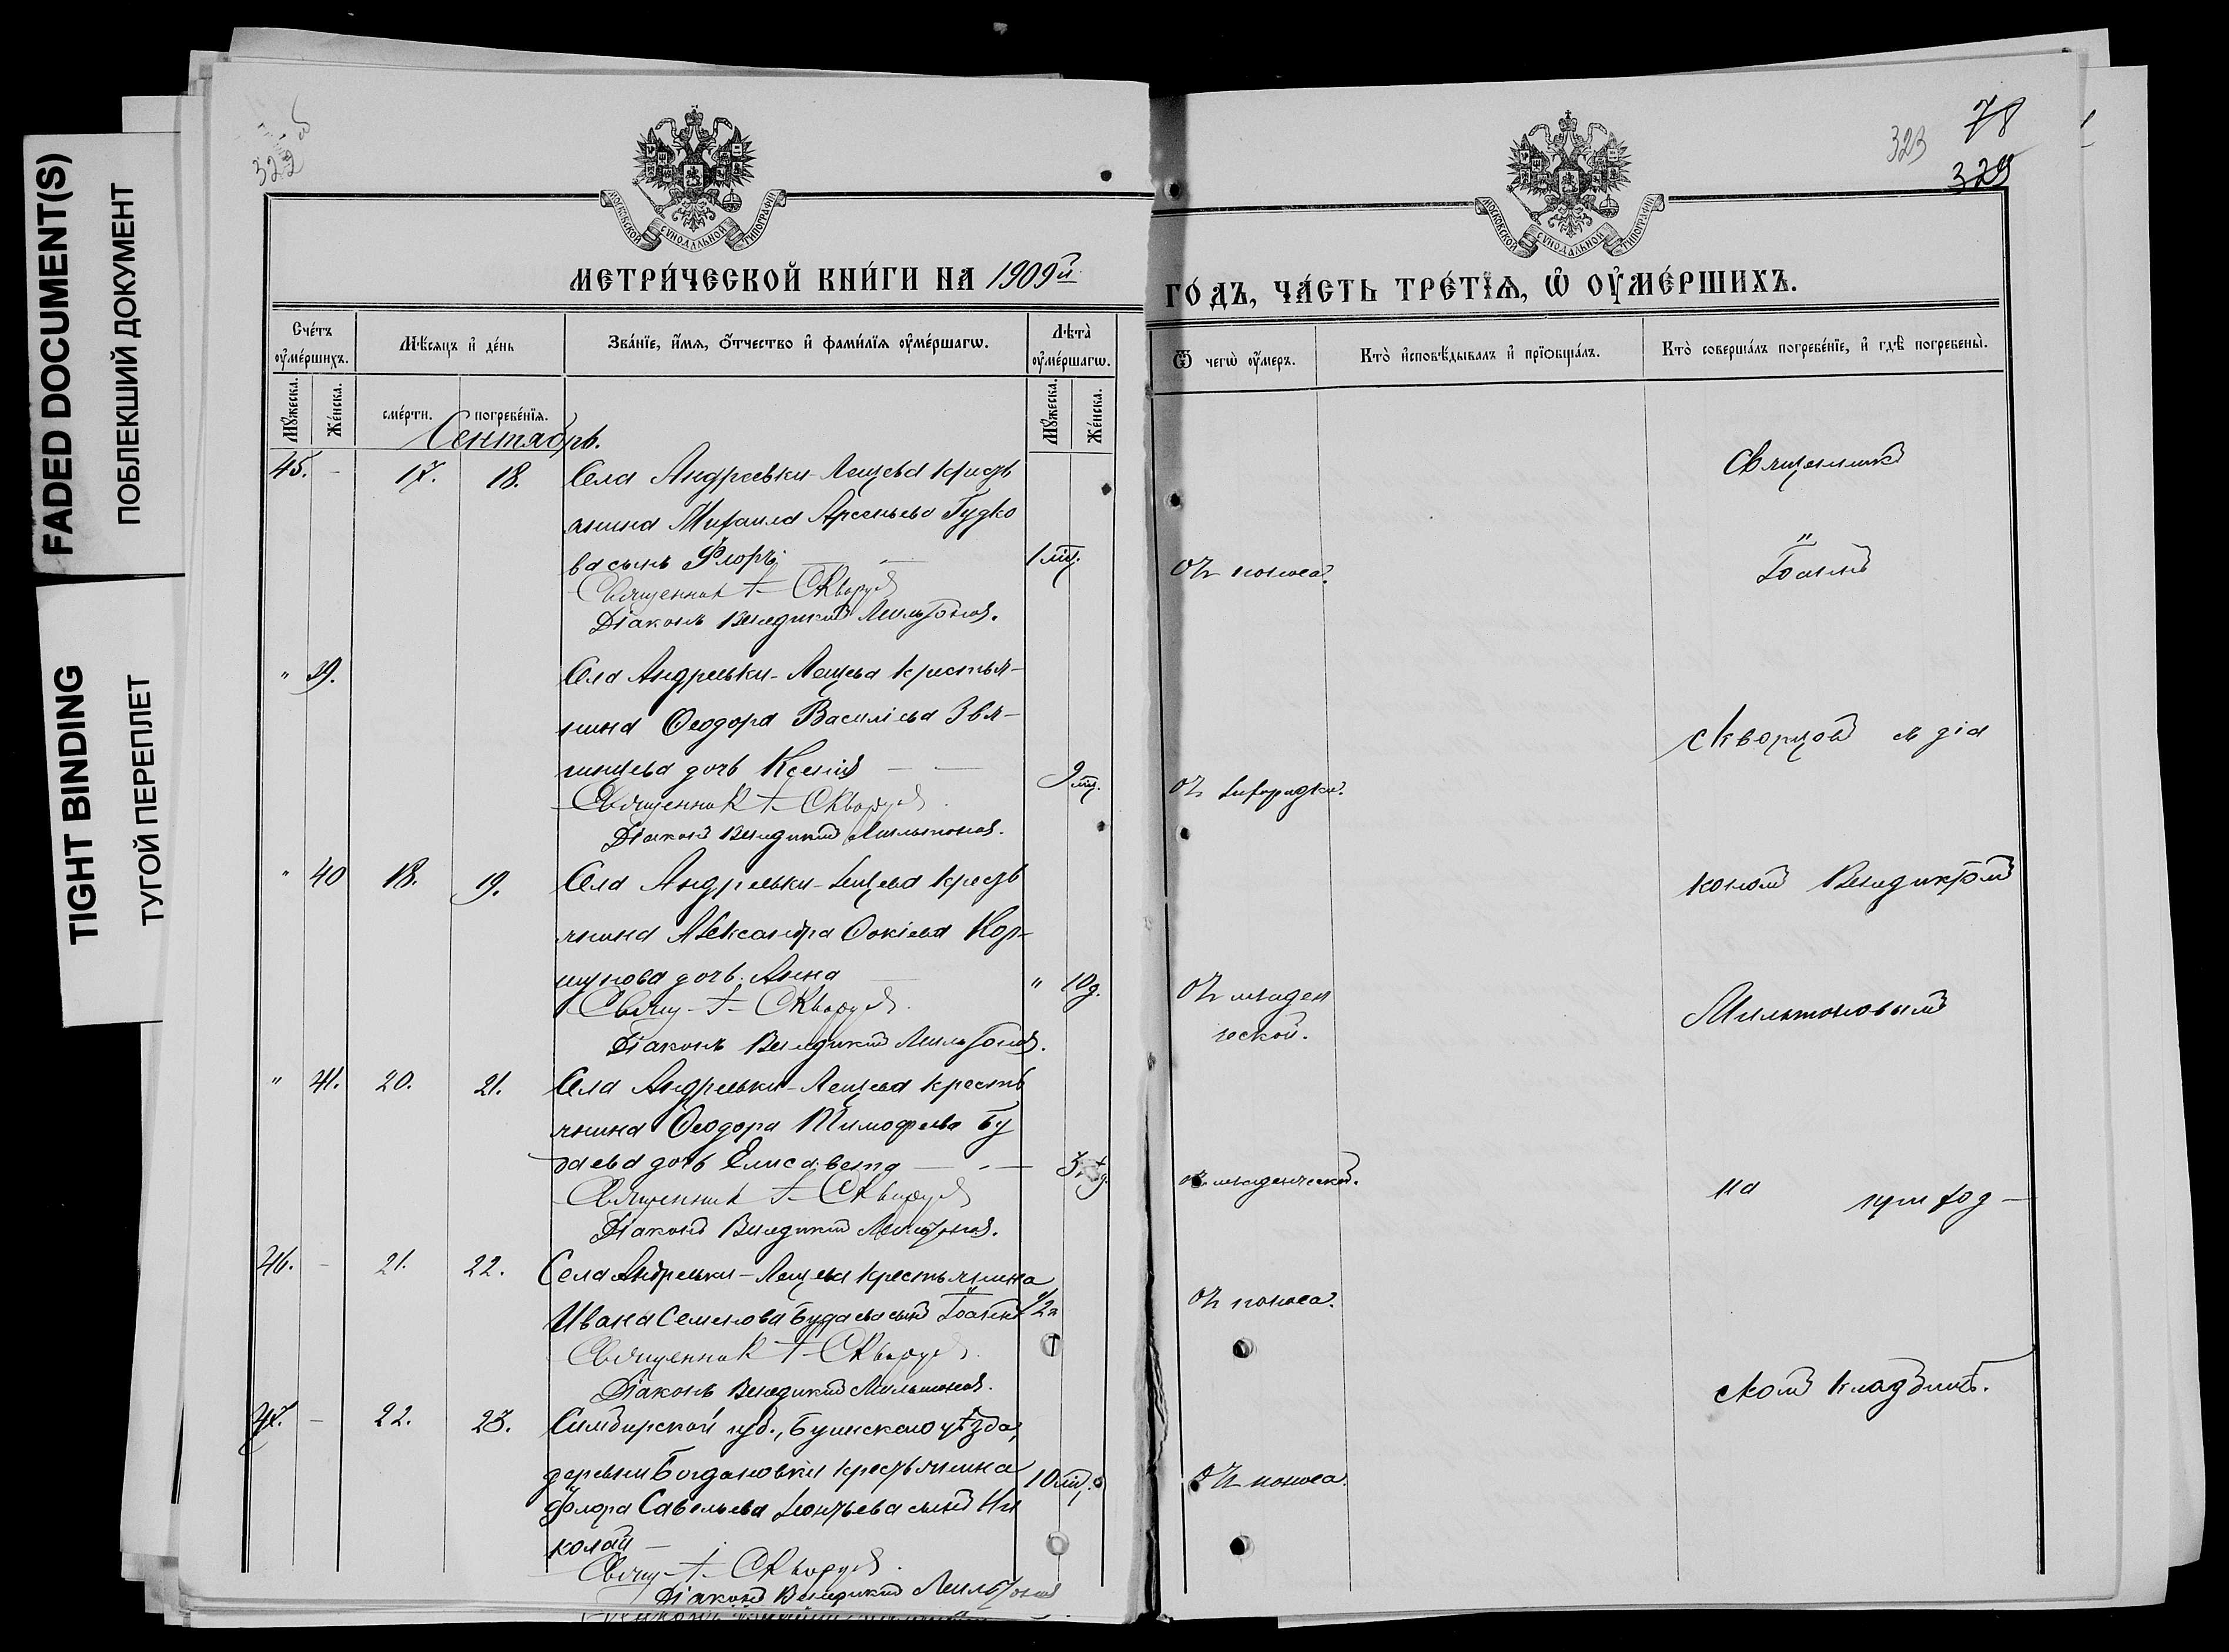 FADED DOCUMENT(S)
ПОБЛЕКШИЙ ДОКУМЕНТ
TIGHT BINDING
ТУГОЙ ПЕРЕПЛЕТ
322 об
МОСКОВСКОЙ СѴНОДАЛЬНОЙ ТИПОГРАФІИ
МЕТРИ́ЧЕСКОЙ КНИ́ГИ НА 1909й
Сче́тъ ᲂу҆ме́ршихъ.
Мѣ́сяцъ и҆ де́нь
Зва́нїе, и҆́мѧ, ѻ҆́тчество и҆ фами́лїѧ ᲂу҆ме́ршагѡ.
Лѣта̀ ᲂу҆ме́ршагѡ.
Мꙋ́жеска.
Же́нска.
сме́рти.
погребе́нїѧ.
Мꙋ́жеска.
Же́нска.
Сентябрь.
45. - 17. 18. Села Андреевки-Лещева кресть
янина Михаила Арсеньева Гудко
ва сынъ Флоръ 1 мц.
Священник І. Скворцов
Діаконъ Венедиктъ Мильтонов.
" 39. Села Андреевки-Лещева крестья-
нина Ѳеодора Василіева Звя-
гинцева дочь Ксенія 9 мц.
Священник І. Скворцов
Діаконъ Венедиктъ Мильтонов.
" 40 18. 19. Села Андреевки-Лещева кресть
янина Александра Фокіева Кор-
шунова дочь Анна " 10 д.
Свящ. І. Скворцов
Діаконъ Венедиктъ Мильтонов.
" 41. 20. 21. Села Андреевки-Лещева кресть
янина Ѳеодора Тимофеева Бу
даева дочь Елисавета 3 д.
Священник І. Скворцов
Діаконъ Венедиктъ Мильтонов.
46. - 21. 22. Села Андреевки-Лещева крестьянина
Ивана Семенова Будаева сынъ Іоаннъ 1/2 г.
Священник І. Скворцов
Діаконъ Венедиктъ Мильтонов.
47. - 22. 23. Симбирской губ., Буинскаго уѣзда,
деревни Богдановки крестьянина 10 мц.
Флора Савельева Леонтьева сынъ Ни
колай
Свящ. І. Скворцов
Діаконъ Венедиктъ Мильтонов
323
78
329
МОСКОВСКОЙ СѴНОДАЛЬНОЙ ТИПОГРАФІИ
ГО́ДЪ, ЧА́СТЬ ТРЕ́ТЇѦ, Ѡ҆ ОУ҆МЕ́РШИХЪ.
Ѿ чегѡ̀ ᲂу҆́меръ.
Кто̀ и҆сповѣ́дывалъ и҆ прїѡбща́лъ.
Кто̀ соверша́лъ погребе́нїе, и҆ гдѣ̀ погребены̀.
Священникъ
отъ поноса.
Іоаннъ
Скворцовъ съ діа
отъ лихорадки.
кономъ Венедиктомъ
отъ младен
ческой.
Мильтоновымъ
отъ младенческой.
на приход-
отъ поноса.
скомъ кладбищѣ.
отъ поноса.